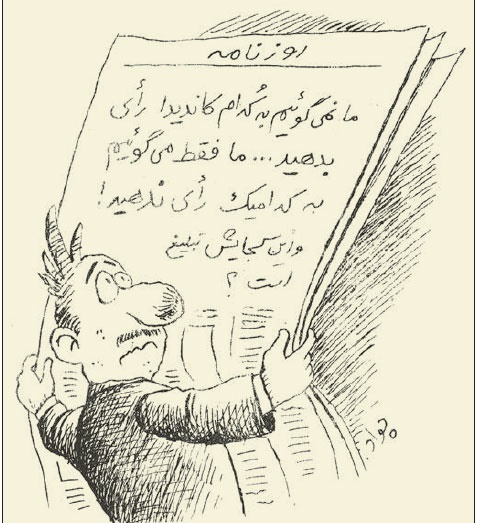 روزنامه
ما نمی‌گوئیم به کُدام کاندیدا رأی
بدهید... ما فقط می‌گوئیم
به کدامیک رأی ندهید!
و این کجایش تبلیغ
است؟